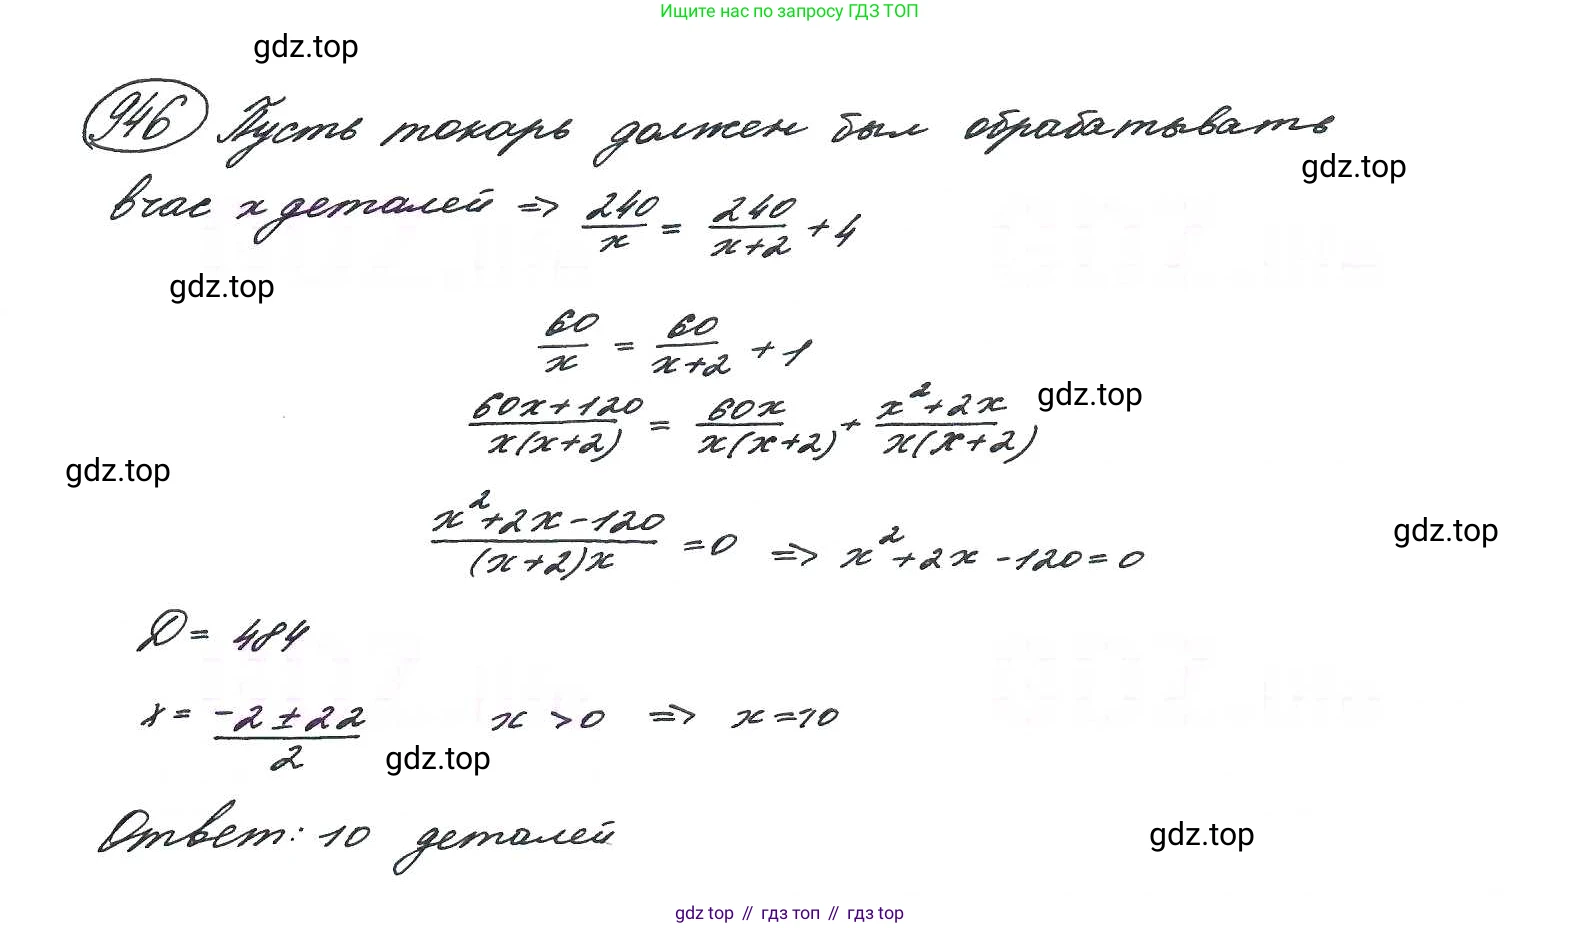 Ищите нас по запросу ГДЗ ТОП
gdz.top
946 Пусть токарь должен был обрабатывать
gdz.top
в час x деталей => 240/x = 240/(x+2) + 4
gdz.top
60/x = 60/(x+2) + 1
gdz.top
(60x+120)/(x(x+2)) = 60x/(x(x+2)) + (x²+2x)/(x(x+2))
gdz.top
(x²+2x-120)/((x+2)x) = 0 => x²+2x-120=0
gdz.top
D = 484
x = (-2±22)/2 x>0 => x=10
gdz.top
Ответ: 10 деталей
gdz.top
gdz top // гдз топ // гдз top